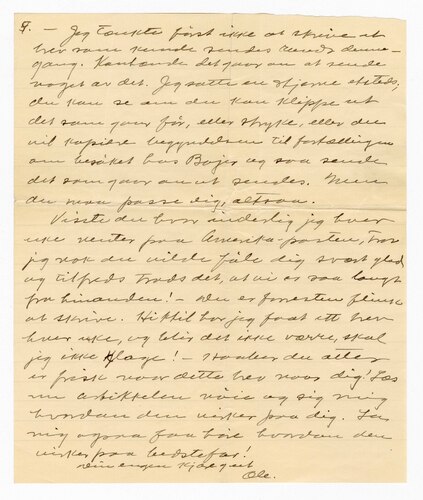 7. — Jeg tænkte først ikke at skrive et
brev som kunde sendes rundt denne-
gang. Kanhende det gaar an at sende
noget av det. Jeg satte en stjerne etsteds,
du kan se om du kan klippe ut
det som gaar før, eller stryke, eller du
vil kopiere begyndelsen til fortællingen
om besøket hos Bojer og saa sende
det som gaar an at sendes. Men
du maa passe dig, altsaa.
Visste du hvor inderlig jeg hver
uke venter paa Amerika-posten, tror
jeg nok du vilde føle dig svært glad
og tilfreds trods det, at vi er saa langt
fra hinanden! — Du er forresten flink
at skrive. Hittil har jeg faat ett brev
hver uke, og blir det ikke værre, skal
jeg ikke klage! — Haaber du atter
er frisk naar dette brev naar dig! Læs
nu artikkelen nøie og sig mig
hvordan den virker paa dig. La
mig ogsaa faa høre hvordan den
virker paa bedstefar!
Din egen kjæregut
Ole.